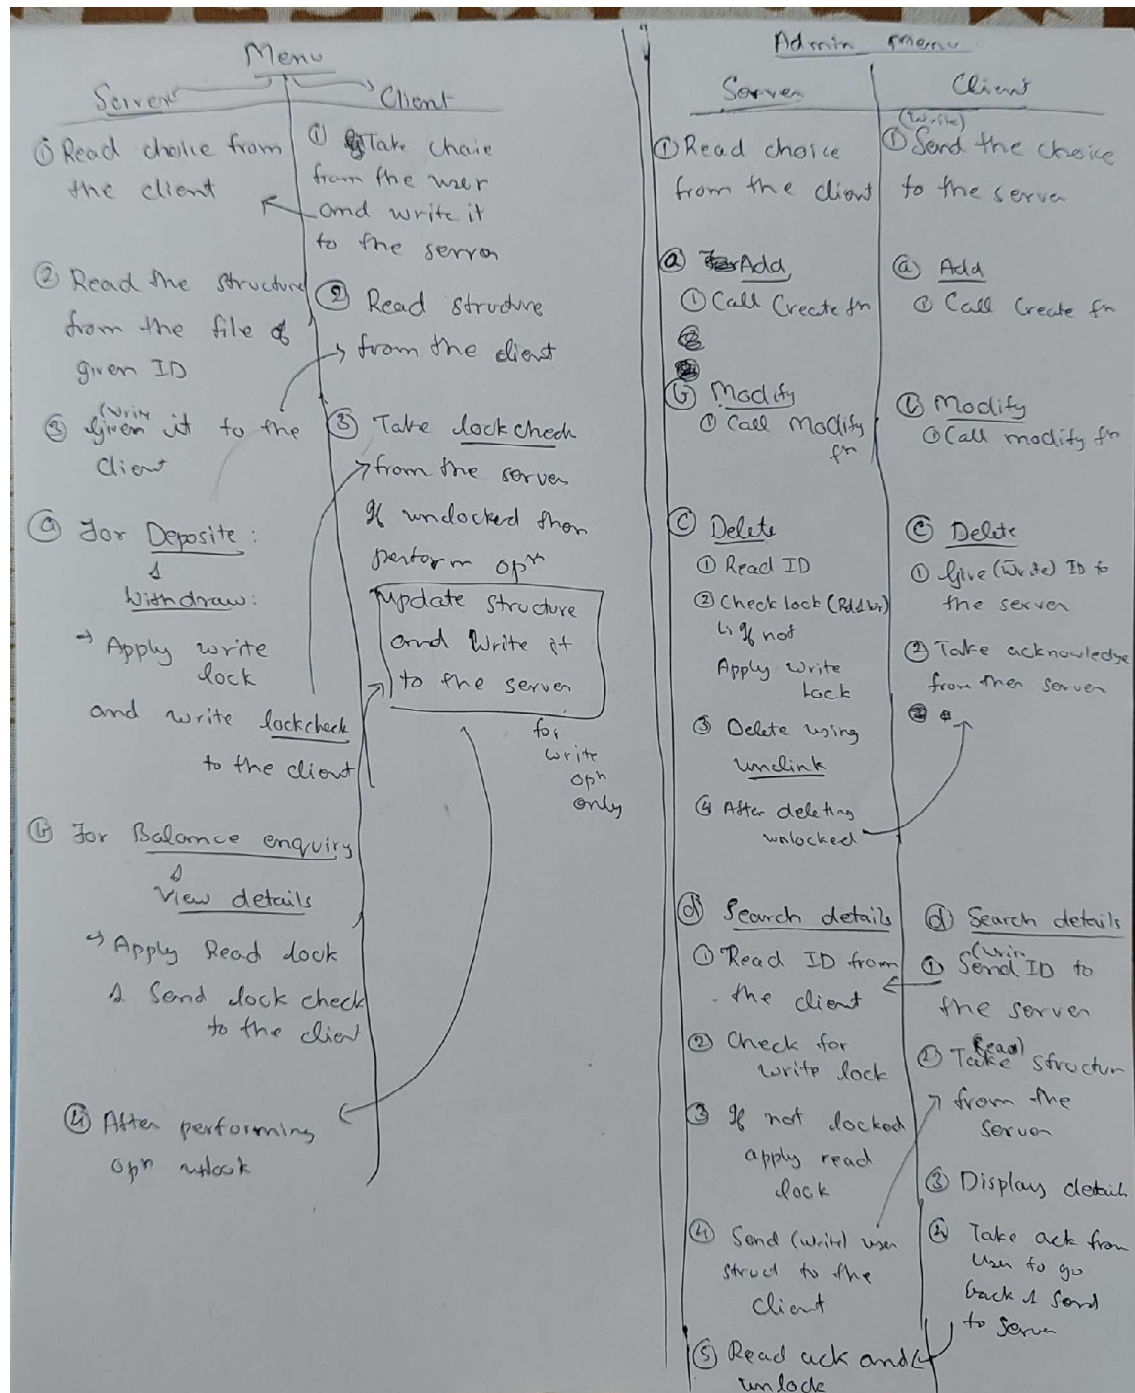 Menu
Server
① Read choice from
the client
② Read the structure
from the file of
given ID
(write
③ Given it to the
client
ⓐ For Deposite :
&
Withdraw:
→ Apply write
lock
and write lockcheck
to the client
ⓑ For Balance enquiry
&
View details
→ Apply Read lock
& Send lock check
to the client
④ After performing
opn unlock
Client
① Take choie
from the user
and write it
to the server
② Read structure
from the client
③ Take lockcheck
from the server
If unlocked then
perform opn
update structure
and Write it
to the server
for
write
opn
only
Admin Menu
Server
① Read choice
from the client
ⓐ Add
① Call Create fn
ⓑ Modify
① Call Modify
fn
ⓒ Delete
① Read ID
② Check lock (Rd & Wr)
↳ If not
Apply Write
Lock
③ Delete using
unclink
④ After deleting
unlocked
ⓓ Search details
① Read ID from
the client
② Check for
write lock
③ If not locked
apply read
lock
④ Send (write) user
struct to the
Client
⑤ Read ack and
unlock
Client
(Write)
① Send the choice
to the server
ⓐ Add
① Call Create fn
ⓑ Modify
① Call modify fn
ⓒ Delete
① Give (Write) ID to
the server
② Take acknowledge
from then server
ⓓ Search details
(Write
① Send ID to
the server
(Read)
② Take structur
from the
server
③ Display detail
④ Take ack from
User to go
back & send
to server